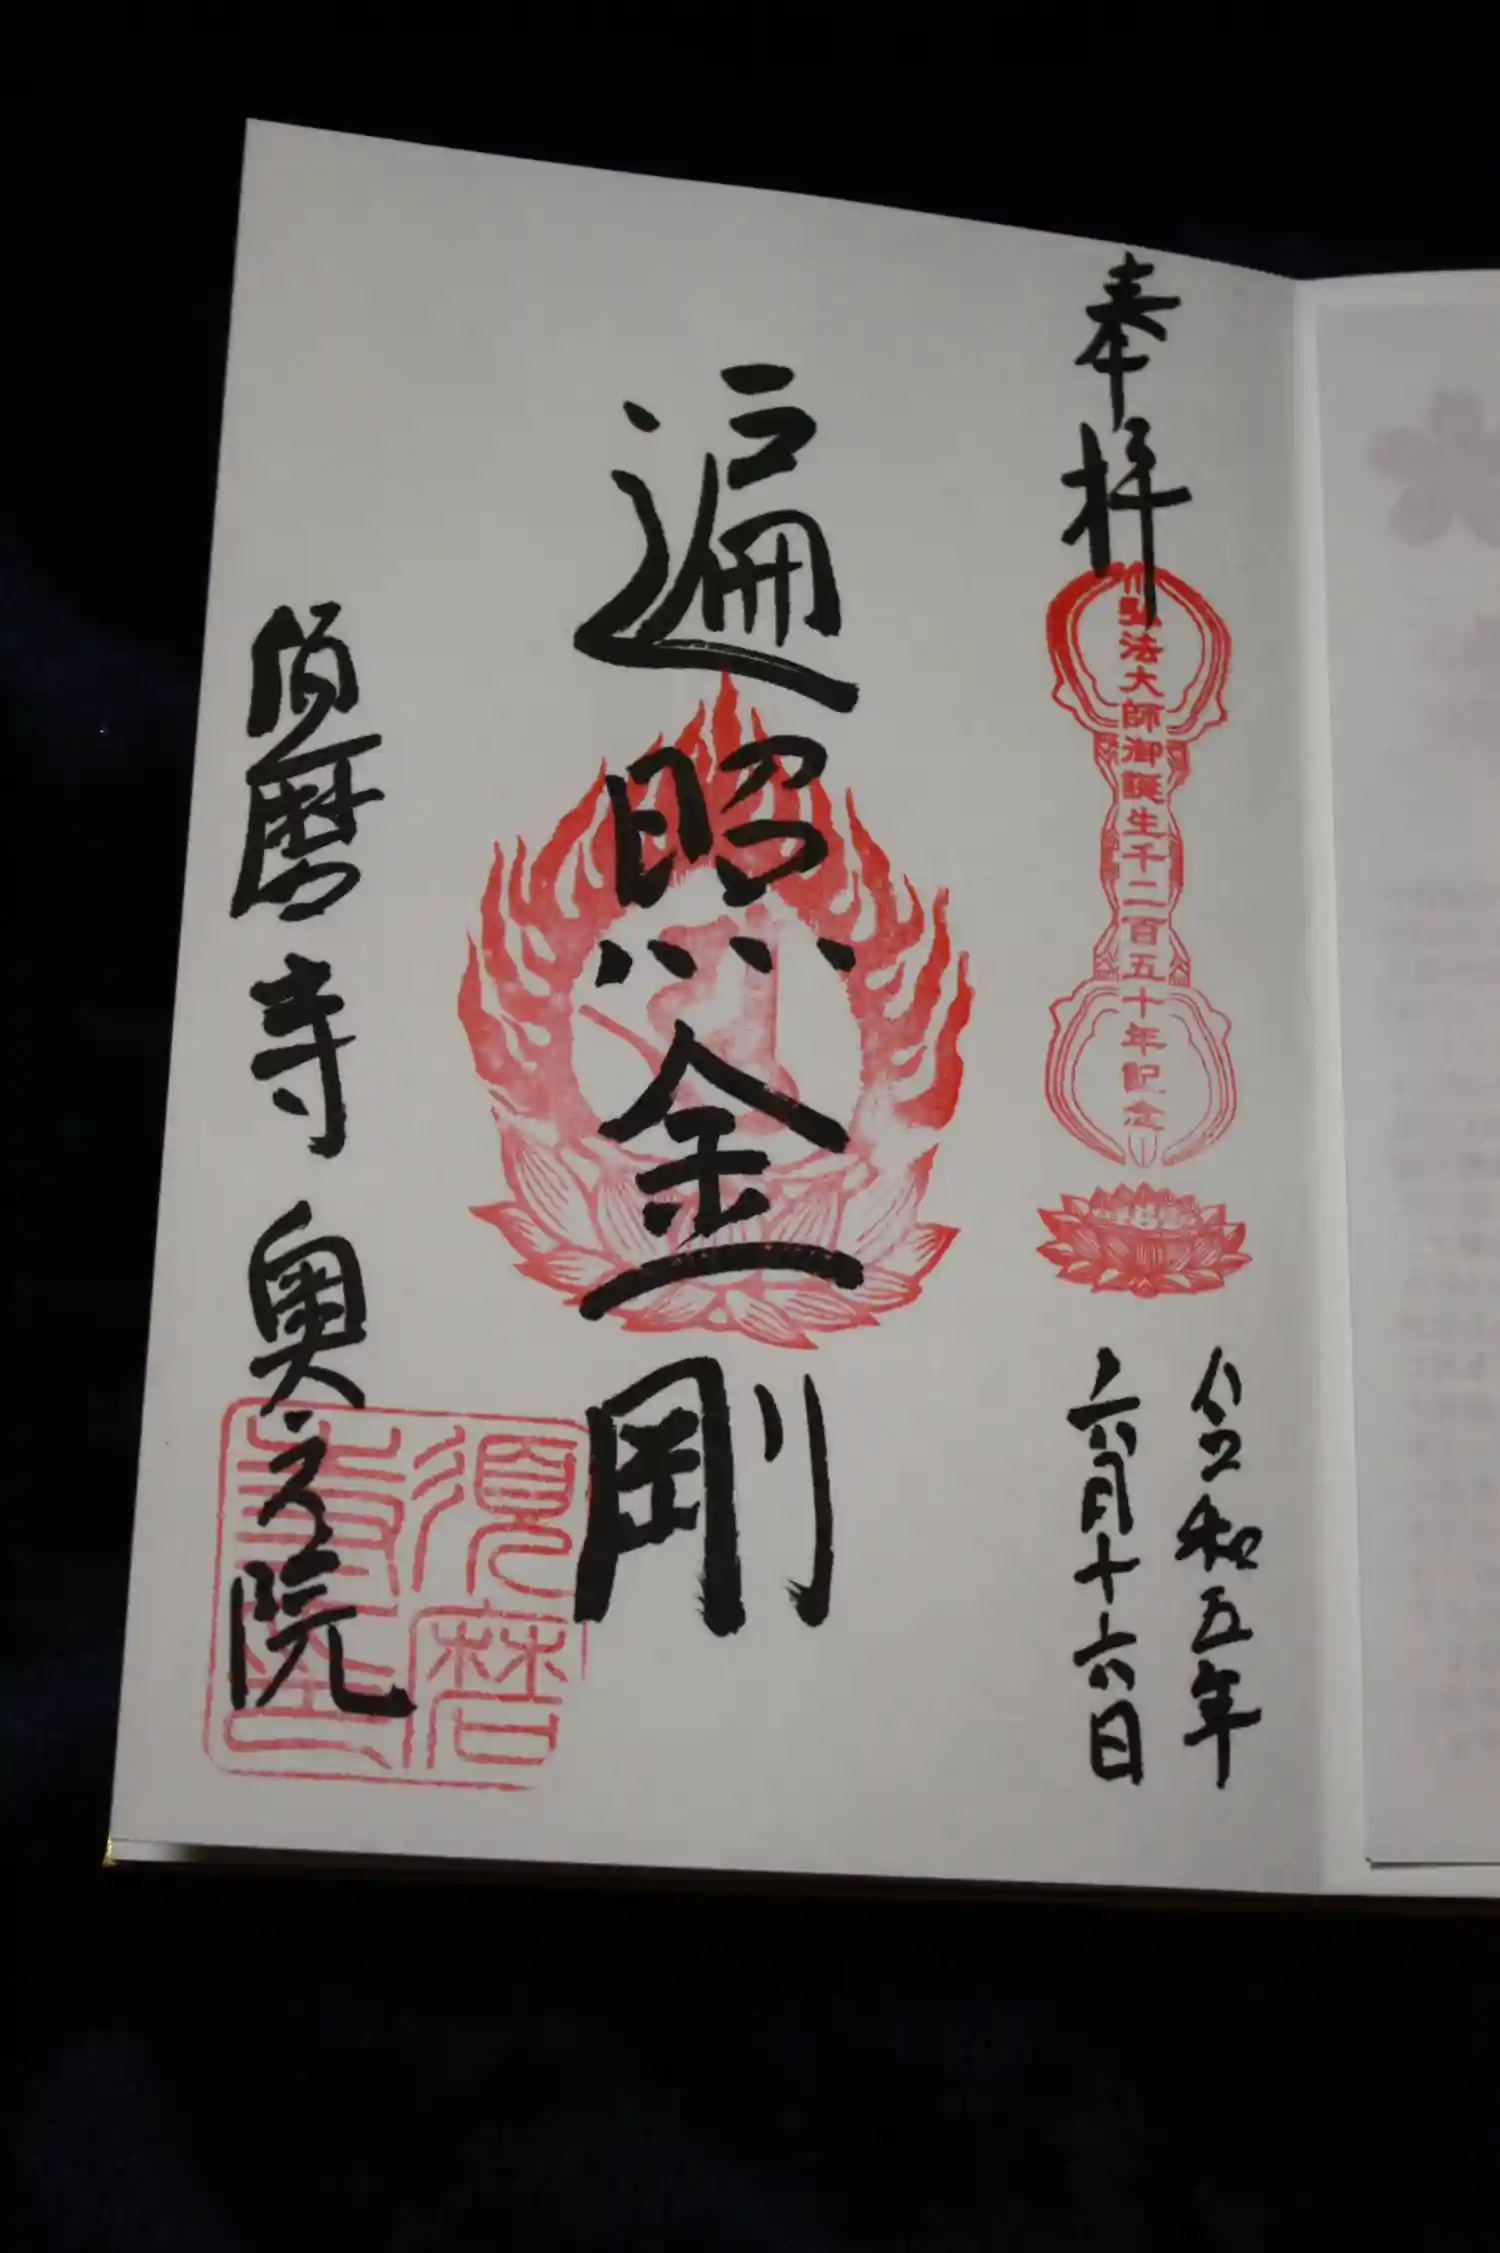 奉拝
弘法大師御誕生千二百五十年記念
令和五年
六月十六日
遍照金剛
須磨寺奥之院
須磨
寺印